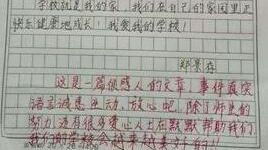 学校就是我的家，我们在自己的家园里正
快乐健康地成长！我爱我的学校！
郑景存
这是一篇很感人的文章，事件真实
语言诚恳生动，放心吧，除了师生的
努力，还有很多爱心人士在默默帮助我们，
我们的学校会越来越美好的！！